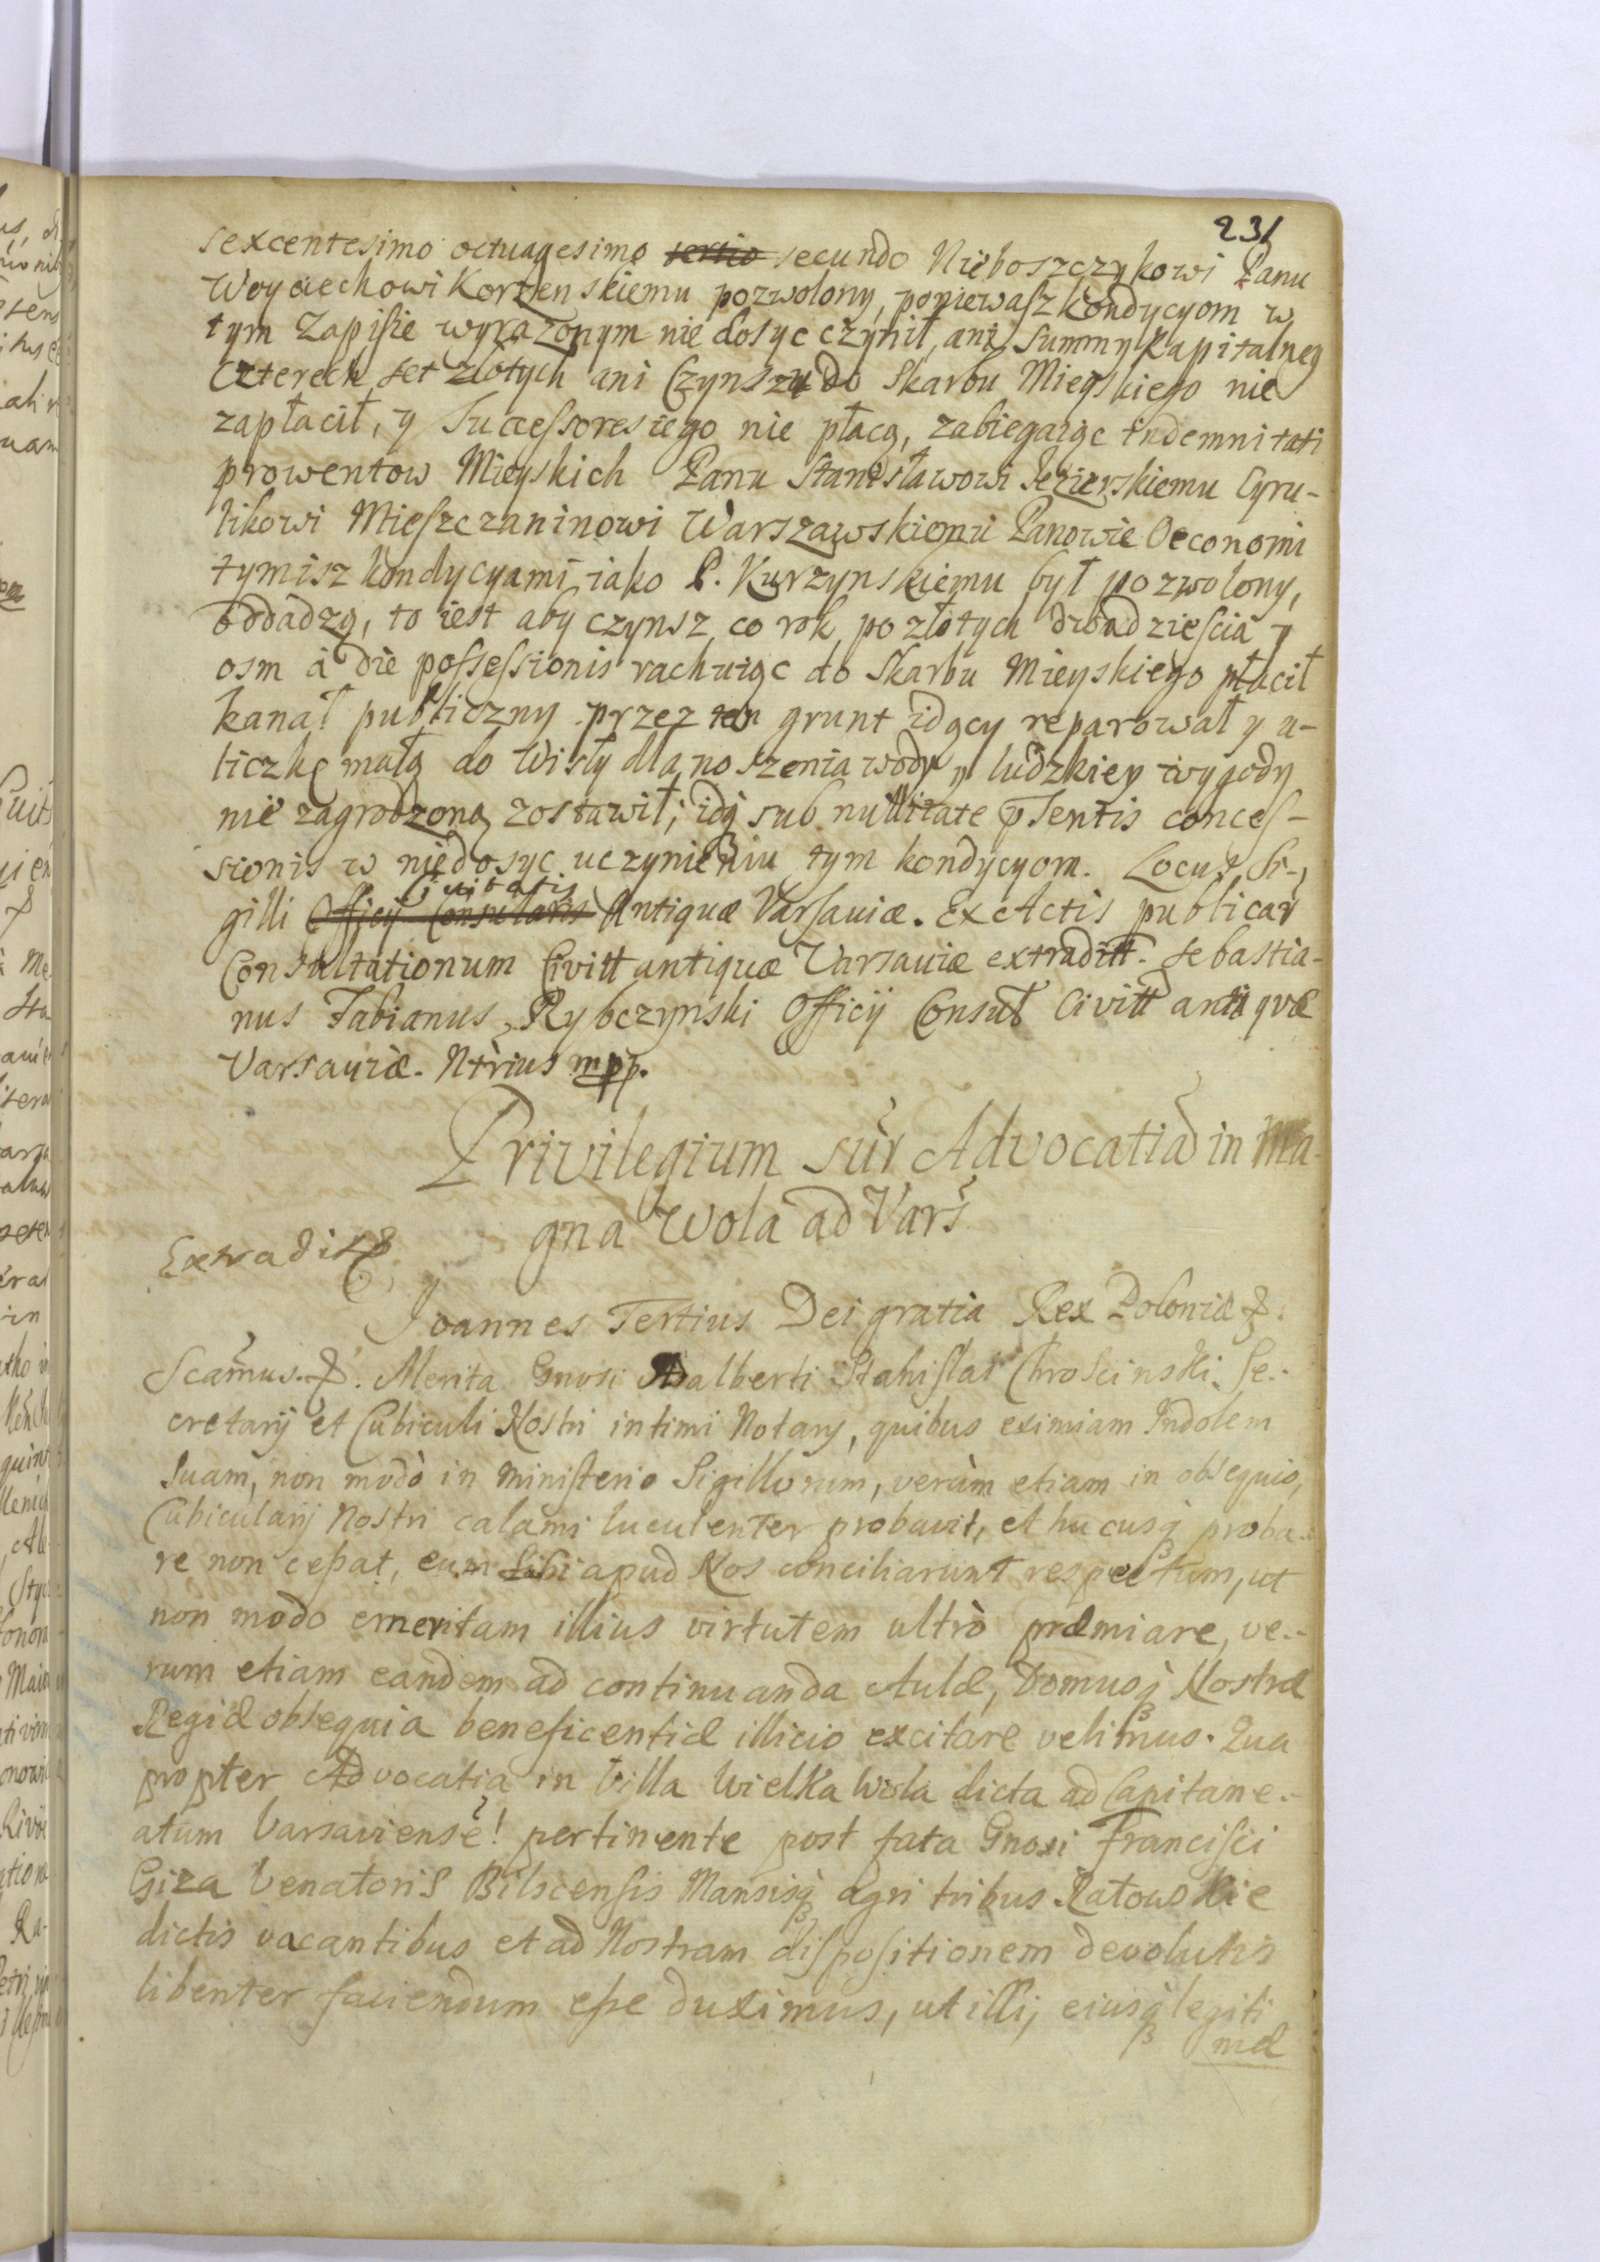 231
sexcentesimo octuagesimo tertio secundo Nieboszczykowi Panu
Woyciechowi Korzenskiemu pozwolony, poniewasz kondycyom w
tym Zapisie wyrazonym nie dosyc czynił, ani Summy Kapitalney
czterech set złotych ani Czynszu do Skarbu Mieyskiego nie
zapłacił, y Successores iego nie płacą, zabiegaiąc indemnitati
prowentow Mieyskich Panu Stanisławowi Jezierskiemu Cyru-
likowi Mieszczaninowi Warszawskiemu Panowie Oeconomi
tymisz kondycyami iako P. Kurzynskiemu był pozwolony,
oddadzą, to iest aby czynsz co rok po złotych dwadziescia y
osm à die possessionis rachuiąc do Skarbu Mieyskiego płacił
kanał publiczny przez ten grunt idący reparował y u-
liczkę małą do Wisły dla noszenia wody y ludzkiey wygody
nie zagrodzoną zostawił; idq sub nullitate pñtentis conces-
sionis w niedosyc uczynieniu tym kondycyom. Locus Si-
Civitatis
gilli Officij Consularis Antiquæ Varsaviæ. Ex Actis publicar
Consultationum Civitt antiquæ Varsaviæ extraditt. Sebastia-
nus Fabianus Rybczynski Officij Consul Civitt antiquæ
Varsaviæ. Ntrius mpp.
Privilegium sur Advocatia in Ma-
gna Wola ad Vars
Extradit
Joannes Tertius Dei gratia Rex Poloniæ &.
Scamus. &. Merita Gnosi Adalberti Stanislai Chroscinski Se-
cretarij et Cubiculi Nostri intimi Notarij, quibus eximiam Indolem
suam, non modò in ministerio Sigillorum, verùm etiam in obsequio,
Cubicularij Nostri calami luculenter probavit, et hucusq proba-
re non cessat, eum sibi apud Nos conciliarunt respectum, ut
non modo emeritam illius virtutem ultrò præmiare, ve-
rum etiam eandem ad continuanda Aulæ, Domusq Nostræ
Regiæ obsequia beneficentiæ illicio excitare velimus. Qua
propter Advocatia in Villa Wielka Wola dicta ad Capitane-
atum Varsaviense pertinente post fata Gnosi Francisci
Giza Venatoris Bilscensis Mansisq agri tribus Ratowskie
dictis vacantibus et ad Nostram dispositionem devolutis
libenter faciendum esse duximus, ut illi, eiusq legiti
mæ